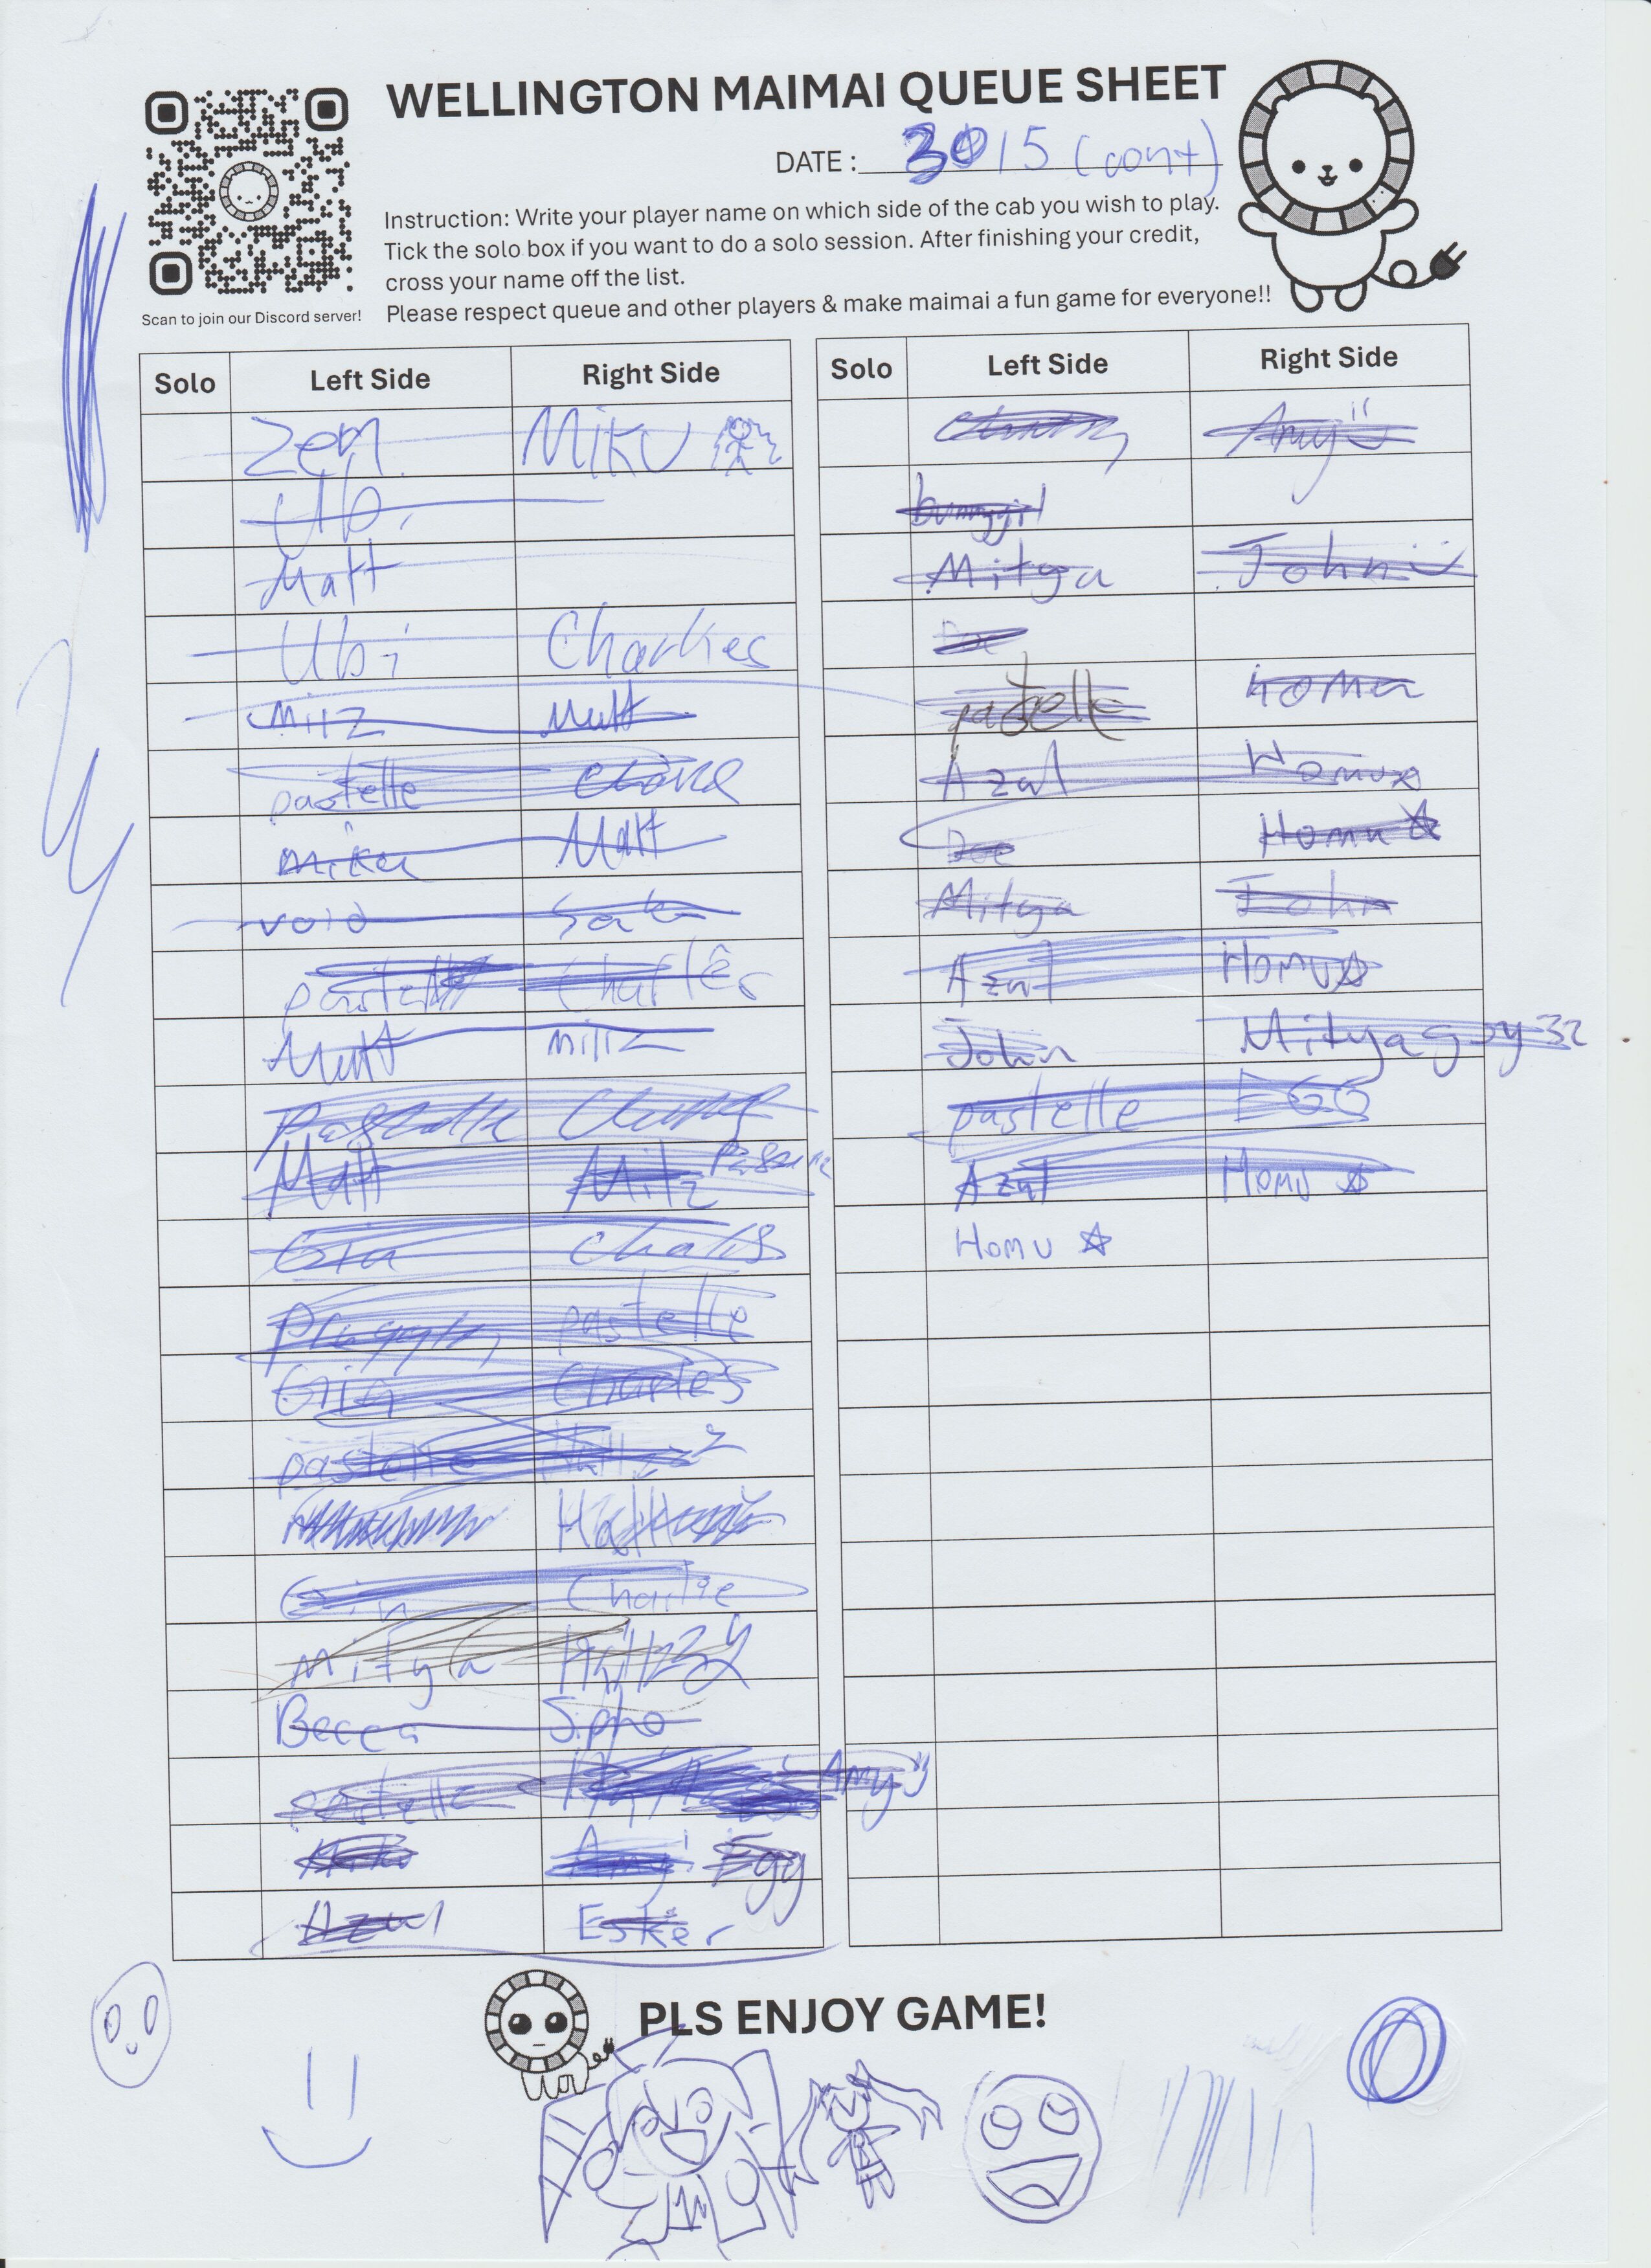 WELLINGTON MAIMAI QUEUE SHEET
DATE : 30/5 (cont)
Instruction: Write your player name on which side of the cab you wish to play.
Tick the solo box if you want to do a solo session. After finishing your credit,
cross your name off the list.
Please respect queue and other players & make maimai a fun game for everyone!!
Scan to join our Discord server!
Solo Left Side Right Side
Zem MIKU
Ubi
Matt
Ubi Charlies
Mitz Matt
pastelle
miku Matt
void
pastelle Charles
Matt millz
Pastelle
Matt Mitz
Gin
pastelle
Gin Charles
pastelle
Gin Charlie
Mitya
Becca Sipho
pastelle Amy ii
Amy Egg
Azul Esker
Solo Left Side Right Side
Amy ü
bunnygirl
Mitya John ü
Doe
pastelle
Azul Homu☆
Doe Homu ☆
Mitya John
Azul Homu☆
John Mityaguy32
pastelle EGG
Azul Homu ☆
Homu ☆
PLS ENJOY GAME!